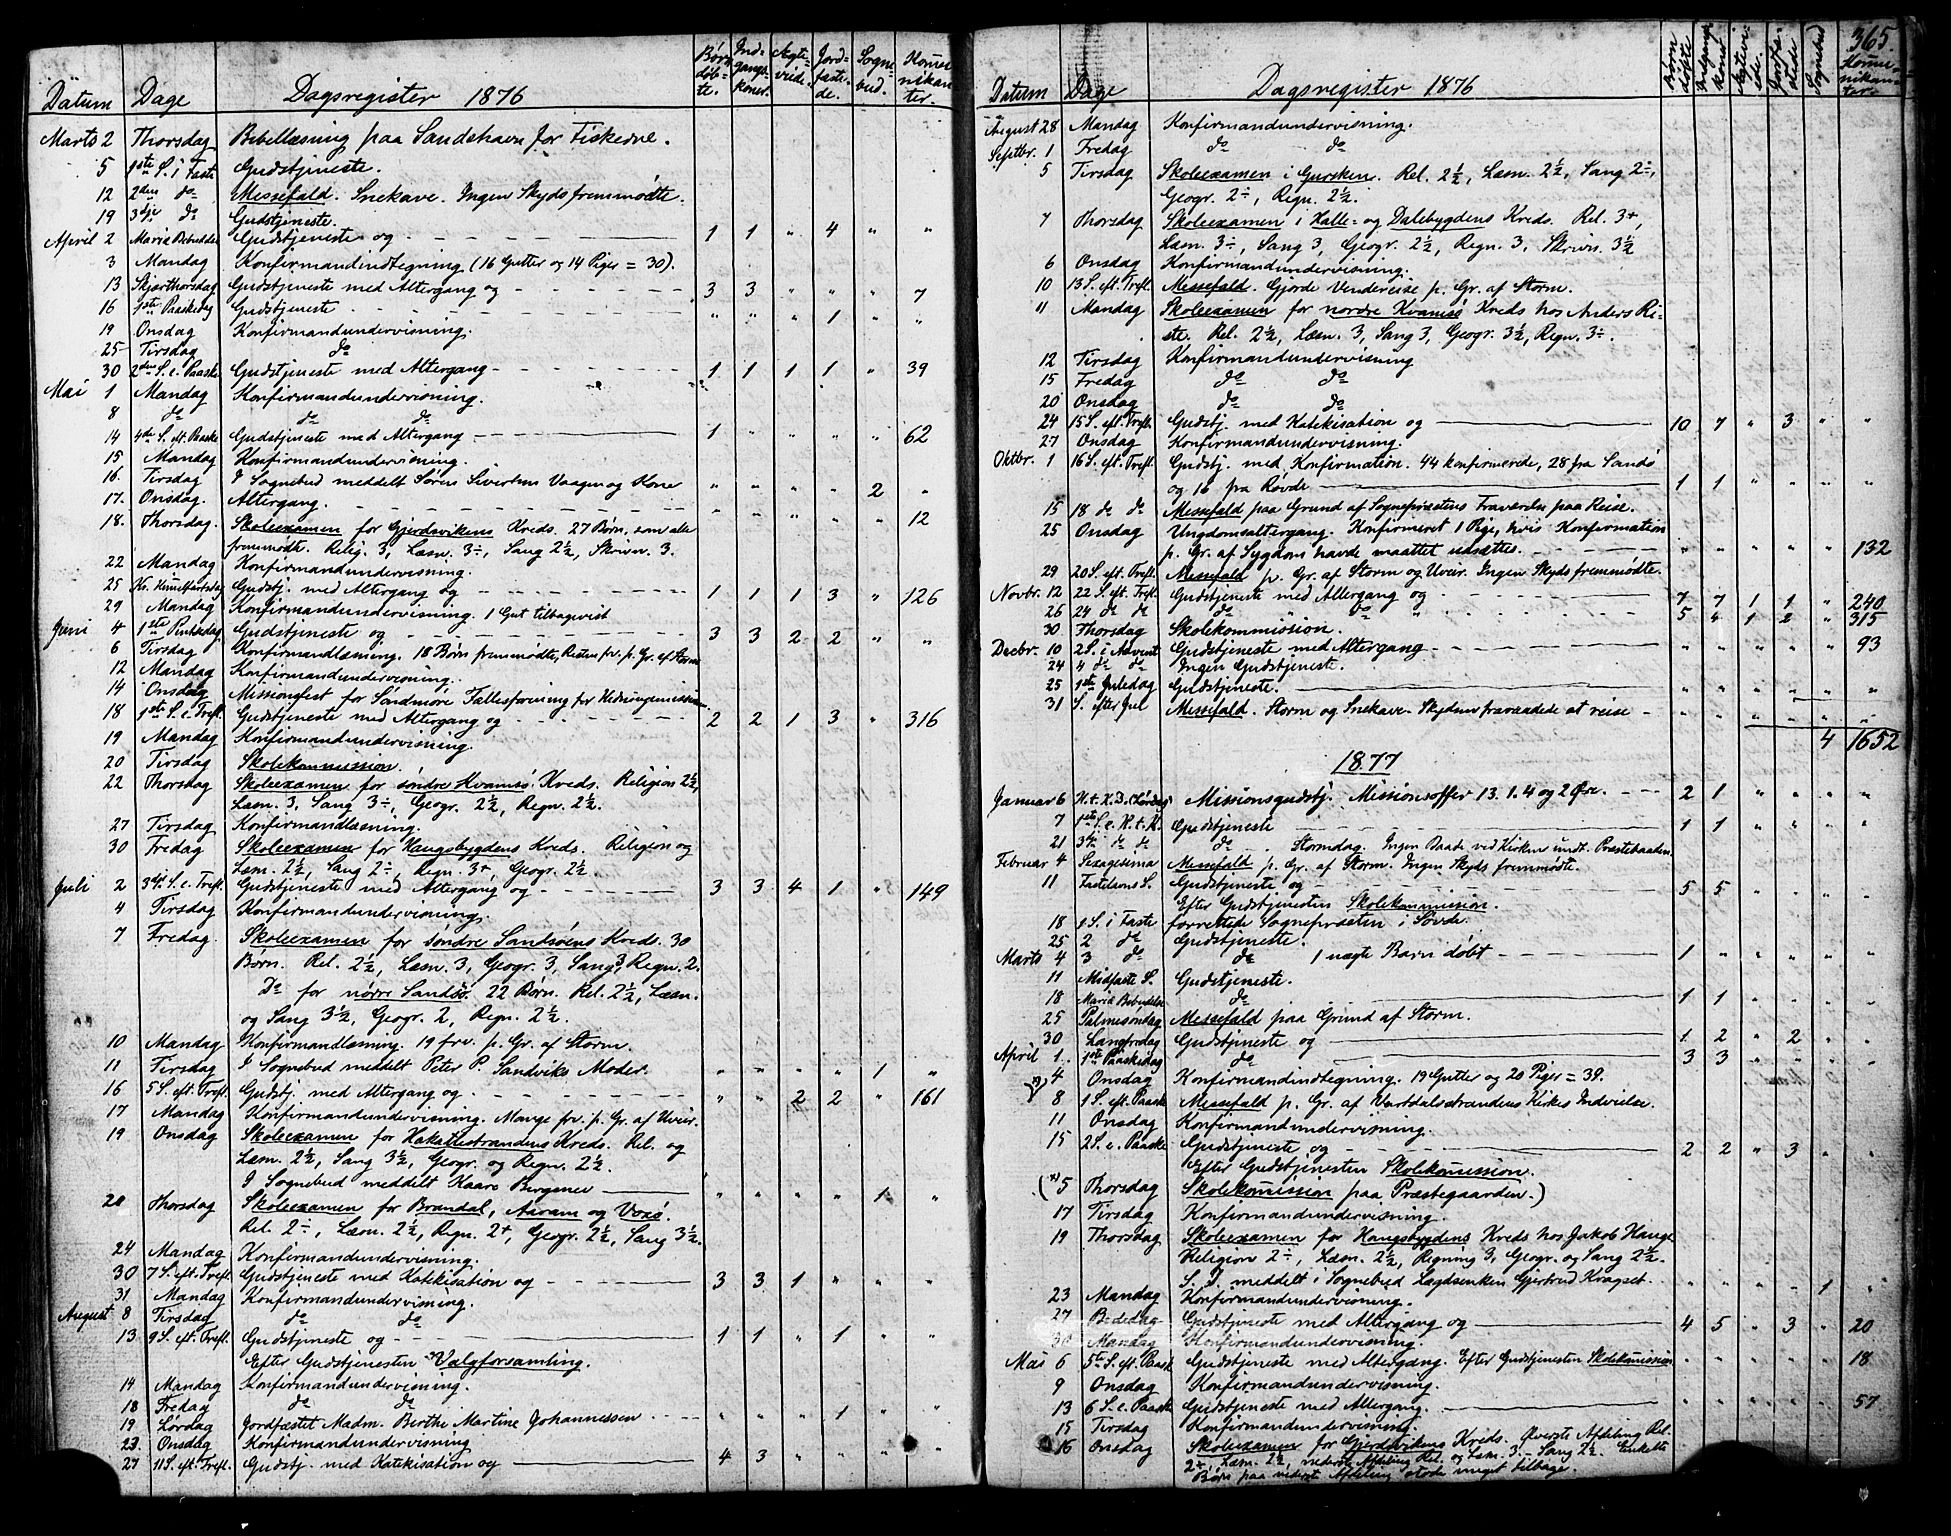 Datum Dage Dagsregister 1876 Børn døb- te. Ind- gangs- koner. Ægte- viede. Jord- fæste- de. Sogne- bud. Kommu- nikan- ter.
Marts 2 Thorsdag Bibellæsning paa Sandshavn for Fiskerne.
5 1ste S. i Faste Gudstjeneste.
12 2den do Messefald. Snekave. Ingen Skyds fremmødte.
19 3dje do Gudstjeneste.
April 2 Mariæ Bebudelse Gudstjeneste og 1 1 " 4 " "
3 Mandag Konfirmandindtegning (16 Gutter og 14 Piger = 30).
13 Skjærthorsdag Gudstjeneste med Altergang og 3 3 " " " 7
16 1ste Paaskedag Gudstjeneste " " " 1 " "
19 Onsdag Konfirmandundervisning.
25 Tirsdag do
30 2den S. e. Paaske Gudstjeneste med Altergang 1 1 1 1 " 39
Mai 1 Mandag Konfirmandundervisning.
8 do do do
14 4de S. eft. Paaske Gudstjeneste med Altergang 1 " " " " 62
15 Mandag Konfirmandundervisning.
16. Tirsdag I Sognebud meddelt Søren Sivertsen Vaagen og Kone " " " " 2 "
17. Onsdag. Altergang. " " " " " 12
18. Thorsdag. Skoleexamen for Gjerdsvikens Kreds. 27 Børn, som alle
fremmødte. Relig. 3, Læsn. 3÷, Sang 2½, Skrivn. 3.
22 Mandag Konfirmandundervisning.
25 Kr. Himmelfartsdag Gudstj. med Altergang og 1 1 1 3 " 126
29 Mandag Konfirmandundervisning. 1 Gut tilbagevist
Juni 4 1ste Pintsedag Gudstjeneste og 3 3 2 2 " "
6 Tirsdag Konfirmandlæsning. 18 Børn fremmødte, Resten frv. p. Gr. af Storm
12 Mandag Konfirmandundervisning.
14 Onsdag Missionsfest for Søndmøre Fællesforening for Hedningemissionen
18 1ste S. e. Tref. Gudstjeneste med Altergang og 2 2 1 3 " 316
19 Mandag Konfirmandundervisning.
20 Tirsdag Skolekommission.
22 Thorsdag Skoleexamen for søndre Kvamsø Kreds. Religion 2½,
Læsn. 3, Sang 3÷, Geogr. 2½, Regn. 2½.
27 Tirsdag Konfirmandlæsning.
30 Fredag Skoleexamen for Haugsbygdens Kreds. Religion og
Læsn. 2½, Sang 2÷, Regn. 3+, Geogr. 2½.
Juli 2 3dje S. e. Tref. Gudstjeneste med Altergang og 3 3 4 1 " 149
4 Tirsdag Konfirmandundervisning.
7 Fredag. Skoleexamen for søndre Sandsøens Kreds. 30
Børn. Rel. 2½, Læsn. 3, Geogr. 3, Sang 3, Regn. 2.
Do for nørre Sandsø. 22 Børn. Rel. 2½, Læsn.
og Sang 3½, Geogr. 2, Regn. 2½.
10 Mandag Konfirmandlæsning. 19 frv. p. Gr. af Storm.
11 Tirsdag I Sognebud meddelt Peter P. Sandviks Moder. " " " " 1 "
16 5 S. eft. Tref. Gudstj. med Altergang og " " 2 2 " 161
17 Mandag Konfirmandundervisning. Mange frv. p. Gr. af Uveir.
19 Onsdag Skoleexamen for Hakallestrandens Kreds. Rel. og
Læsn. 2½, Sang 3½, Geogr. og Regn. 2½.
I Sognebud meddelt Kaare Bergenes " " " " 1 "
20 Thorsdag Skoleexamen for Brandal, Aaram og Voxø.
Rel. 2÷, Læsn. 2½, Regn. 2+, Geogr. 2½, Sang 3½.
24 Mandag Konfirmandundervisning.
30 7 S. eft. Tref. Gudstjeneste med Katekisation og 3 3 1 " " "
31 Mandag Konfirmandundervisning.
August 8 Tirsdag do do
13 9 S. eft. Tref. Gudstjeneste og 1 1 " 1 " "
Efter Gudstjenesten Valgforsamling.
14 Mandag Konfirmandundervisning.
18 Fredag do do
19 Lørdag Jordfæstet Madm. Berthe Martine Johannessen " " " 1 " "
23. Onsdag Konfirmandundervisning
27 11 S. eft. Tref. Gudstj. med Katekisation og 4 3 " " " "
365.
Datum Dage Dagsregister 1876 Børn døbte Indgangs- koner Ægtevi- ede. Jordfæ- stede Sognebud Kommu- nikan- ter.
August 28 Mandag Konfirmandundervisning.
Septbr. 1 Fredag do do
5 Tirsdag Skoleexamen i Gursken. Rel. 2½, Læsn. 2½, Sang 2÷,
Geogr. 2÷, Regn. 2½.
7 Thorsdag Skoleexamen i Halle- og Dalebygdens Kreds. Rel. 3+,
Læsn. 3÷, Sang 3, Geogr. 2½, Regn. 3, Skrivn. 3½
6 Onsdag Konfirmandundervisning.
10 13 S. eft. Tref. Messefald. Gjorde Vendereise p. Gr. af Storm.
11 Mandag Skoleexamen for nordre Kvamsø Kreds hos Anders Ri-
ste. Rel. 2½, Læsn. 3, Sang 3, Geogr. 3½, Regn. 3÷.
12 Tirsdag Konfirmandundervisning
15 Fredag do do
20 Onsdag do do
24 15 S. eft. Tref. Gudstj. med Katekisation og 10 7 " 3 " "
27 Onsdag Konfirmandundervisning.
Oktbr. 1 16 S. eft. Tref. Gudstj. med Konfirmation. 44 konfirmerede, 28 fra Sandø
og 16 fra Røvde 1 1 " " " "
15 18 do do Messefald paa Grund af Sognepræstens Fraværelse paa Reise.
25 Onsdag Ungdomsaltergang. Konfirmeret 1 Pige, hvis Konfirmation
p. Gr. af Sygdom havde maattet udsættes. " " " " " 132
29 20 S. eft. Tref. Messefald p. Gr. af Storm og Uveir. Ingen Skyds fremmødte.
Novbr. 12 22 S. eft. Tref. Gudstjeneste med Altergang og 7 7 1 1 " 240
26 24 do do do " do " 5 4 1 2 " 315
30 Thorsdag Skolekommission.
Decbr. 10 2 S. i Advent Gudstjeneste med Altergang " " " " " 93
24 4 do do Ingen Gudstjenest.
25 1ste Juledag Gudstjeneste. " " " " " "
31 S. efter Jul Messefald. Storm og Snekave. Skydsen fraraadede at reise " " " " " "
4 1652
1877
Januar 6 H. t. K. D. (Lørdag) Missionsgudstj. Missionsoffer 13. 1. 4 og 2 Øre. 2 1 " " " "
7 1ste S. e. H. t. K. Gudstjeneste 1 1 " " " "
21 3die do do do Stormdag. Ingen Baade ved Kirken undt. Præstebaaden.
Februar 4 Sexagesima Messefald p. Gr. af Storm. Ingen Skyds fremmødte.
11 Fastelavns S. Gudstjeneste og 5 5 " " " "
Efter Gudstjenesten Skolekommission.
18 1 S. i Faste forrettede Sognepræsten i Søvde.
25 2 do Gudstjeneste.
Marts 4 3 do do 1 uægte Barn døbt 1 " " " " "
11 Midfaste S. Gudstjeneste.
18 Mariæ Bebudelse do 1 1 " " " "
25 Palmesøndag Messefald paa Grund af Storm.
30 Langfredag Gudstjeneste og 1 2 " 2 " "
April 1. 1ste Paaskedag do 3 3 " " " "
4 Onsdag Konfirmandindtegning. 19 Gutter og 20 Piger = 39.
8 1 S. eft. Paaske Messefald p. Gr. af Vartdalsstrandens Kirkes Indvielse.
11 Onsdag Konfirmandundervisning.
15 2 S. e. Paaske Gudstjeneste og 2 2 " 3 " "
Efter Gudstjenesten Skolekommission.
(*) 5 Thorsdag Skolekommission paa Præstegaarden.)
17 Tirsdag Konfirmandundervisning.
19 Thorsdag Skoleexamen for Haugsbygdens Kreds hos Jakob Hauge
Religion 2÷, Læsn. 2½, Regning 3, Geogr. og Sang 2½.
S. D. meddelt i Sognebud Lægdsenken Gjertrud Kragset. " " " " 1 "
23 Mandag Konfirmandundervisning.
27 Bededag Gudstjeneste med Altergang og 4 5 " 3 " 20
30 Mandag Konfirmandundervisning.
Mai 6 5te S. eft. Paaske Gudstjeneste med Altergang. Efter Gudstjenesten Skolekommission " " " " " 18
9 Onsdag Konfirmandundervisning.
13 6 S. e. Paaske Gudstjeneste med Altergang. " " " " " 57
15 Tirsdag Konfirmandundervisning.
16 Onsdag Skoleexamen for Gjerdsvikens Kreds. Øverste Afdeling Rel.
2+, Læsn. 2½, nederste Afdeling Rel. og Læsn. 3. - Sang 2½. Enkelte
Børn paa nederste Afdeling stode meget tilbage.